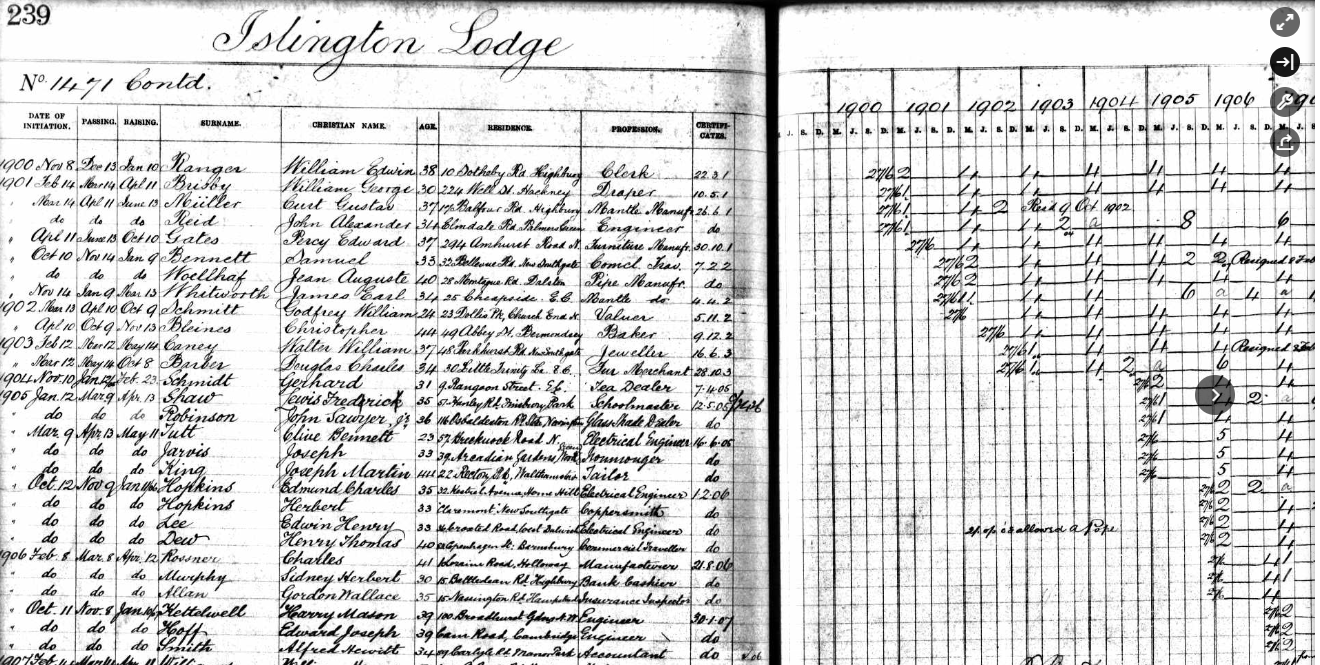 239
Islington Lodge
No. 1471 Contd.
1900 1901 1902 1903 1904 1905 1906
DATE OF INITIATION. PASSING. RAISING. SURNAME. CHRISTIAN NAME. AGE. RESIDENCE. PROFESSION. CERTIFI-CATES.
1900 Nov 8 Dec 13 Jan 10 Ranger William Edwin 38 10 Rd Highbury Clerk 22.3.1 27/6 2 4 4 4 4 4
1901 Feb 14 Mar 14 Apl 11 Brisby William George 30 224 Well St. Hackney Draper 10.5.1 27/6 1 4 4 4 4 4
" Mar 14 Apl 11 June 13 Müller Curt Gustav 37 Balfour Rd. Highbury Mantle Manufr 26.6.1 27/6 1 4 2 Resd 9 Oct 1902
" do do do Reid John Alexander 34 Elmdale Rd Palmers Green Engineer do 27/6 1 4 4 2 a 8 6
" Apl 11 June 13 Oct 10 Gates Percy Edward 37 294 Amhurst Road N. Furniture Manufr. 30.10.1 27/6 4 4 4 4 4
" Oct 10 Nov 14 Jan 9 Bennett Samuel 33 32 Bellevue Rd. New Southgate Comcl. Trav. 7.2.2 27/6 2 4 4 2 2 Resigned 8 Feb
" do do do Woellhaf Jean Auguste 40 28 Montague Rd. Dalston Pipe Manufr. do 27/6 2 4 4 4 4
" Nov 14 Jan 9 Mar 13 Whitworth James Earl 34 25 Cheapside. E.C. Mantle do 4.4.2 27/6 4 4 6 a 4 a
1902 Mar 13 Apl 10 Oct 9 Schmitt Godfrey William 24 23 Church End N. Valuer 5.11.2 27/6 4 4 4 4
" Apl 10 Oct 9 Nov 13 Bleines Christopher 44 49 Abbey St. Bermondsey Baker 9.12.2 27/6 4 4 4 4
1903 Feb 12 Mar 12 May 14 Caney Walter William 37 48 Parkhurst Rd. New Southgate Jeweller 16.6.3 27/6 1 4 4 4 Resigned 8 Feb
" Mar 12 May 14 Oct 8 Barber Douglas Charles 34 30 Little Trinity La. E.C. Fur Merchant 28.10.3 27/6 1 4 2 a 6
1904 Nov. 10 Jan 12 Feb. 23 Schmidt Gerhard 31 9 Rangoon Street. E.C. Tea Dealer 7.4.05 27/6 2 4
1905 Jan. 12 Mar. 9 Apr. 13 Shaw Lewis Frederick 35 57 Henley Rd. Finsbury Park Schoolmaster 12.5.05 27/6 1 2 a
do do do Robinson John Sawyer, jr. 36 116 Osbaldeston Rd. Stoke Newington Glass Shade Dealer do 27/6 1 4 4
" Mar. 9 Apr 13 May 11 Tutt Clive Bennett 23 57 Brecknock Road N. Electrical Engineer 16.6.05 27/6 5 4
" do do do Jarvis Joseph 33 39 Arcadian Gardens Wood Green Ironmonger do 27/6 5 4
" do do do King Joseph Martin 44 22 Rectory Rd., Walthamstow Tailor do 27/6 5 4
" Oct. 12 Nov 9 Jan 11/06 Hopkins Edmund Charles 35 32 Kestrel Avenue, Herne Hill Electrical Engineer 1.2.06 27/6 2 2 a
" do do do Hopkins Herbert 33 Claremont, New Southgate Coppersmith do 27/6 2 4
" do do do Lee Edwin Henry 33 Croxted Road, West Dulwich Electrical Engineer do 2/- of is allowed a Pope 27/6 2 4
" do do do Dew Henry Thomas 40 Copenhagen St. Barnsbury Commercial Traveller do 27/6 2 4
1906 Feb. 8 Mar. 8 Apr. 12 Rossner Charles 41 Loraine Road, Holloway Manufacturer 21.8.06 27/6 4 1
" do do do Murphy Sidney Herbert 30 15 Battledean Rd. Highbury Bank Cashier do 27/6 4 1
" do do do Allan Gordon Wallace 35 15 Nassington Rd. Hampstead Insurance Inspector do 27/6 4 1
" Oct. 11 Nov. 8 Jan 10/07 Kettelwell Harry Mason 39 100 Broadhurst Gdns N.W. Engineer 30.1.07 27/6 2
" do do do Hoff Edward Joseph 39 Cam Road, Cambridge Engineer do 27/6 2
" do do do Smith Alfred Hewitt 34 Carlyle Rd. Manor Park Accountant do 27/6 2
1907 Feb